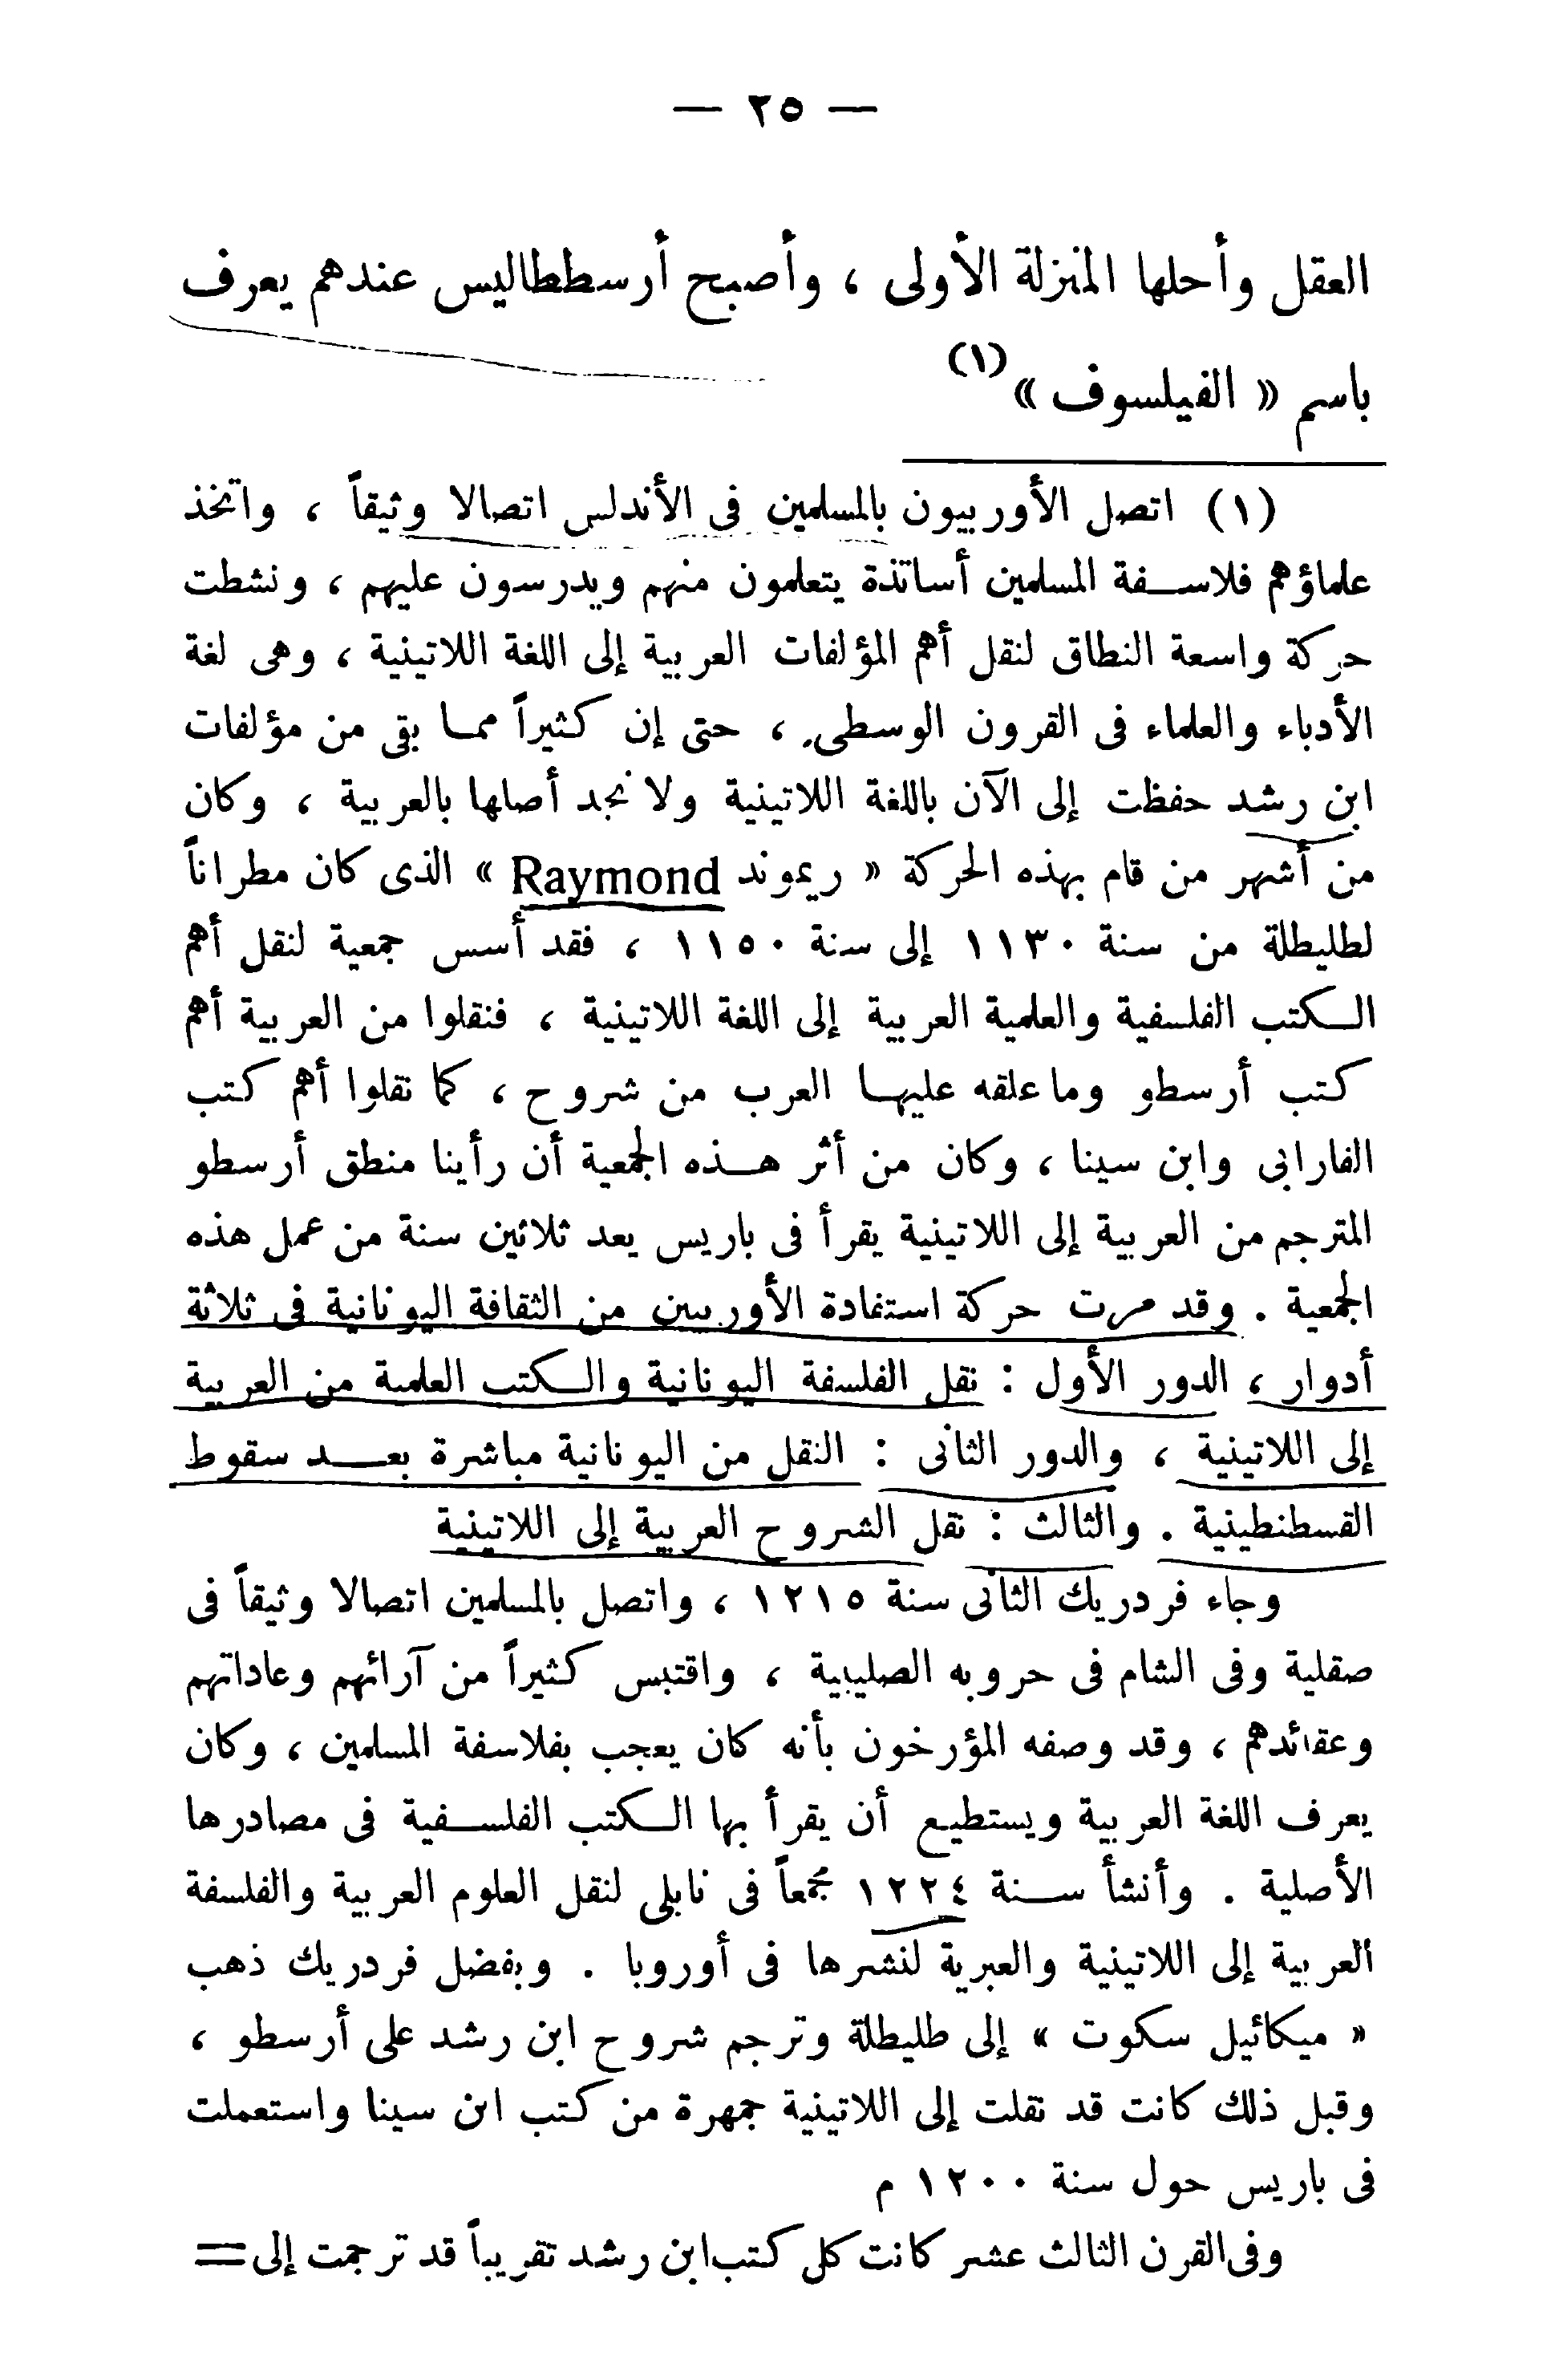 — ٢٥ —
العقل وأحلها المنزلة الأولى ، وأصبح أرسططاليس عندهم يعرف
باسم « الفيلسوف »(١)
(١) اتصل الأوربيون بالمسلمين فى الأندلس اتصالا وثيقاً ، واتخذ
علماؤهم فلاسفة المسلمين أساتذة يتعلمون منهم ويدرسون عليهم ، ونشطت
حركة واسعة النطاق لنقل أهم المؤلفات العربية إلى اللغة اللاتينية ، وهى لغة
الأدباء والعلماء فى القرون الوسطى ، حتى إن كثيراً مما بقى من مؤلفات
ابن رشد حفظت إلى الآن باللغة اللاتينية ولا نجد أصلها بالعربية ، وكان
من أشهر من قام بهذه الحركة « ريموند Raymond » الذى كان مطراناً
لطليطلة من سنة ١١٣٠ إلى سنة ١١٥٠ ، فقد أسس جمعية لنقل أهم
الكتب الفلسفية والعلمية العربية إلى اللغة اللاتينية ، فنقلوا من العربية أهم
كتب أرسطو وما علقه عليها العرب من شروح ، كما نقلوا أهم كتب
الفارابى وابن سينا ، وكان من أثر هذه الجمعية أن رأينا منطق أرسطو
المترجم من العربية إلى اللاتينية يقرأ فى باريس يعد ثلاثين سنة من عمل هذه
الجمعية . وقد مرت حركة استفادة الأوربيين من الثقافة اليونانية فى ثلاثة
أدوار ، الدور الأول : نقل الفلسفة اليونانية والكتب العلمية من العربية
إلى اللاتينية ، والدور الثانى : النقل من اليونانية مباشرة بعد سقوط
القسطنطينية . والثالث : نقل الشروح العربية إلى اللاتينية
وجاء فردريك الثانى سنة ١٢١٥ ، واتصل بالمسلمين اتصالا وثيقاً فى
صقلية وفى الشام فى حروبه الصليبية ، واقتبس كثيراً من آرائهم وعاداتهم
وعقائدهم ، وقد وصفه المؤرخون بأنه كان يعجب بفلاسفة المسلمين ، وكان
يعرف اللغة العربية ويستطيع أن يقرأ بها الكتب الفلسفية فى مصادرها
الأصلية . وأنشأ سنة ١٢٢٤ مجمعاً فى نابلى لنقل العلوم العربية والفلسفة
العربية إلى اللاتينية والعبرية لنشرها فى أوروبا . وبفضل فردريك ذهب
« ميكائيل سكوت » إلى طليطلة وترجم شروح ابن رشد على أرسطو ،
وقبل ذلك كانت قد نقلت إلى اللاتينية جمهرة من كتب ابن سينا واستعملت
فى باريس حول سنة ١٢٠٠ م
وفى القرن الثالث عشر كانت كل كتب ابن رشد تقريباً قد ترجمت إلى =